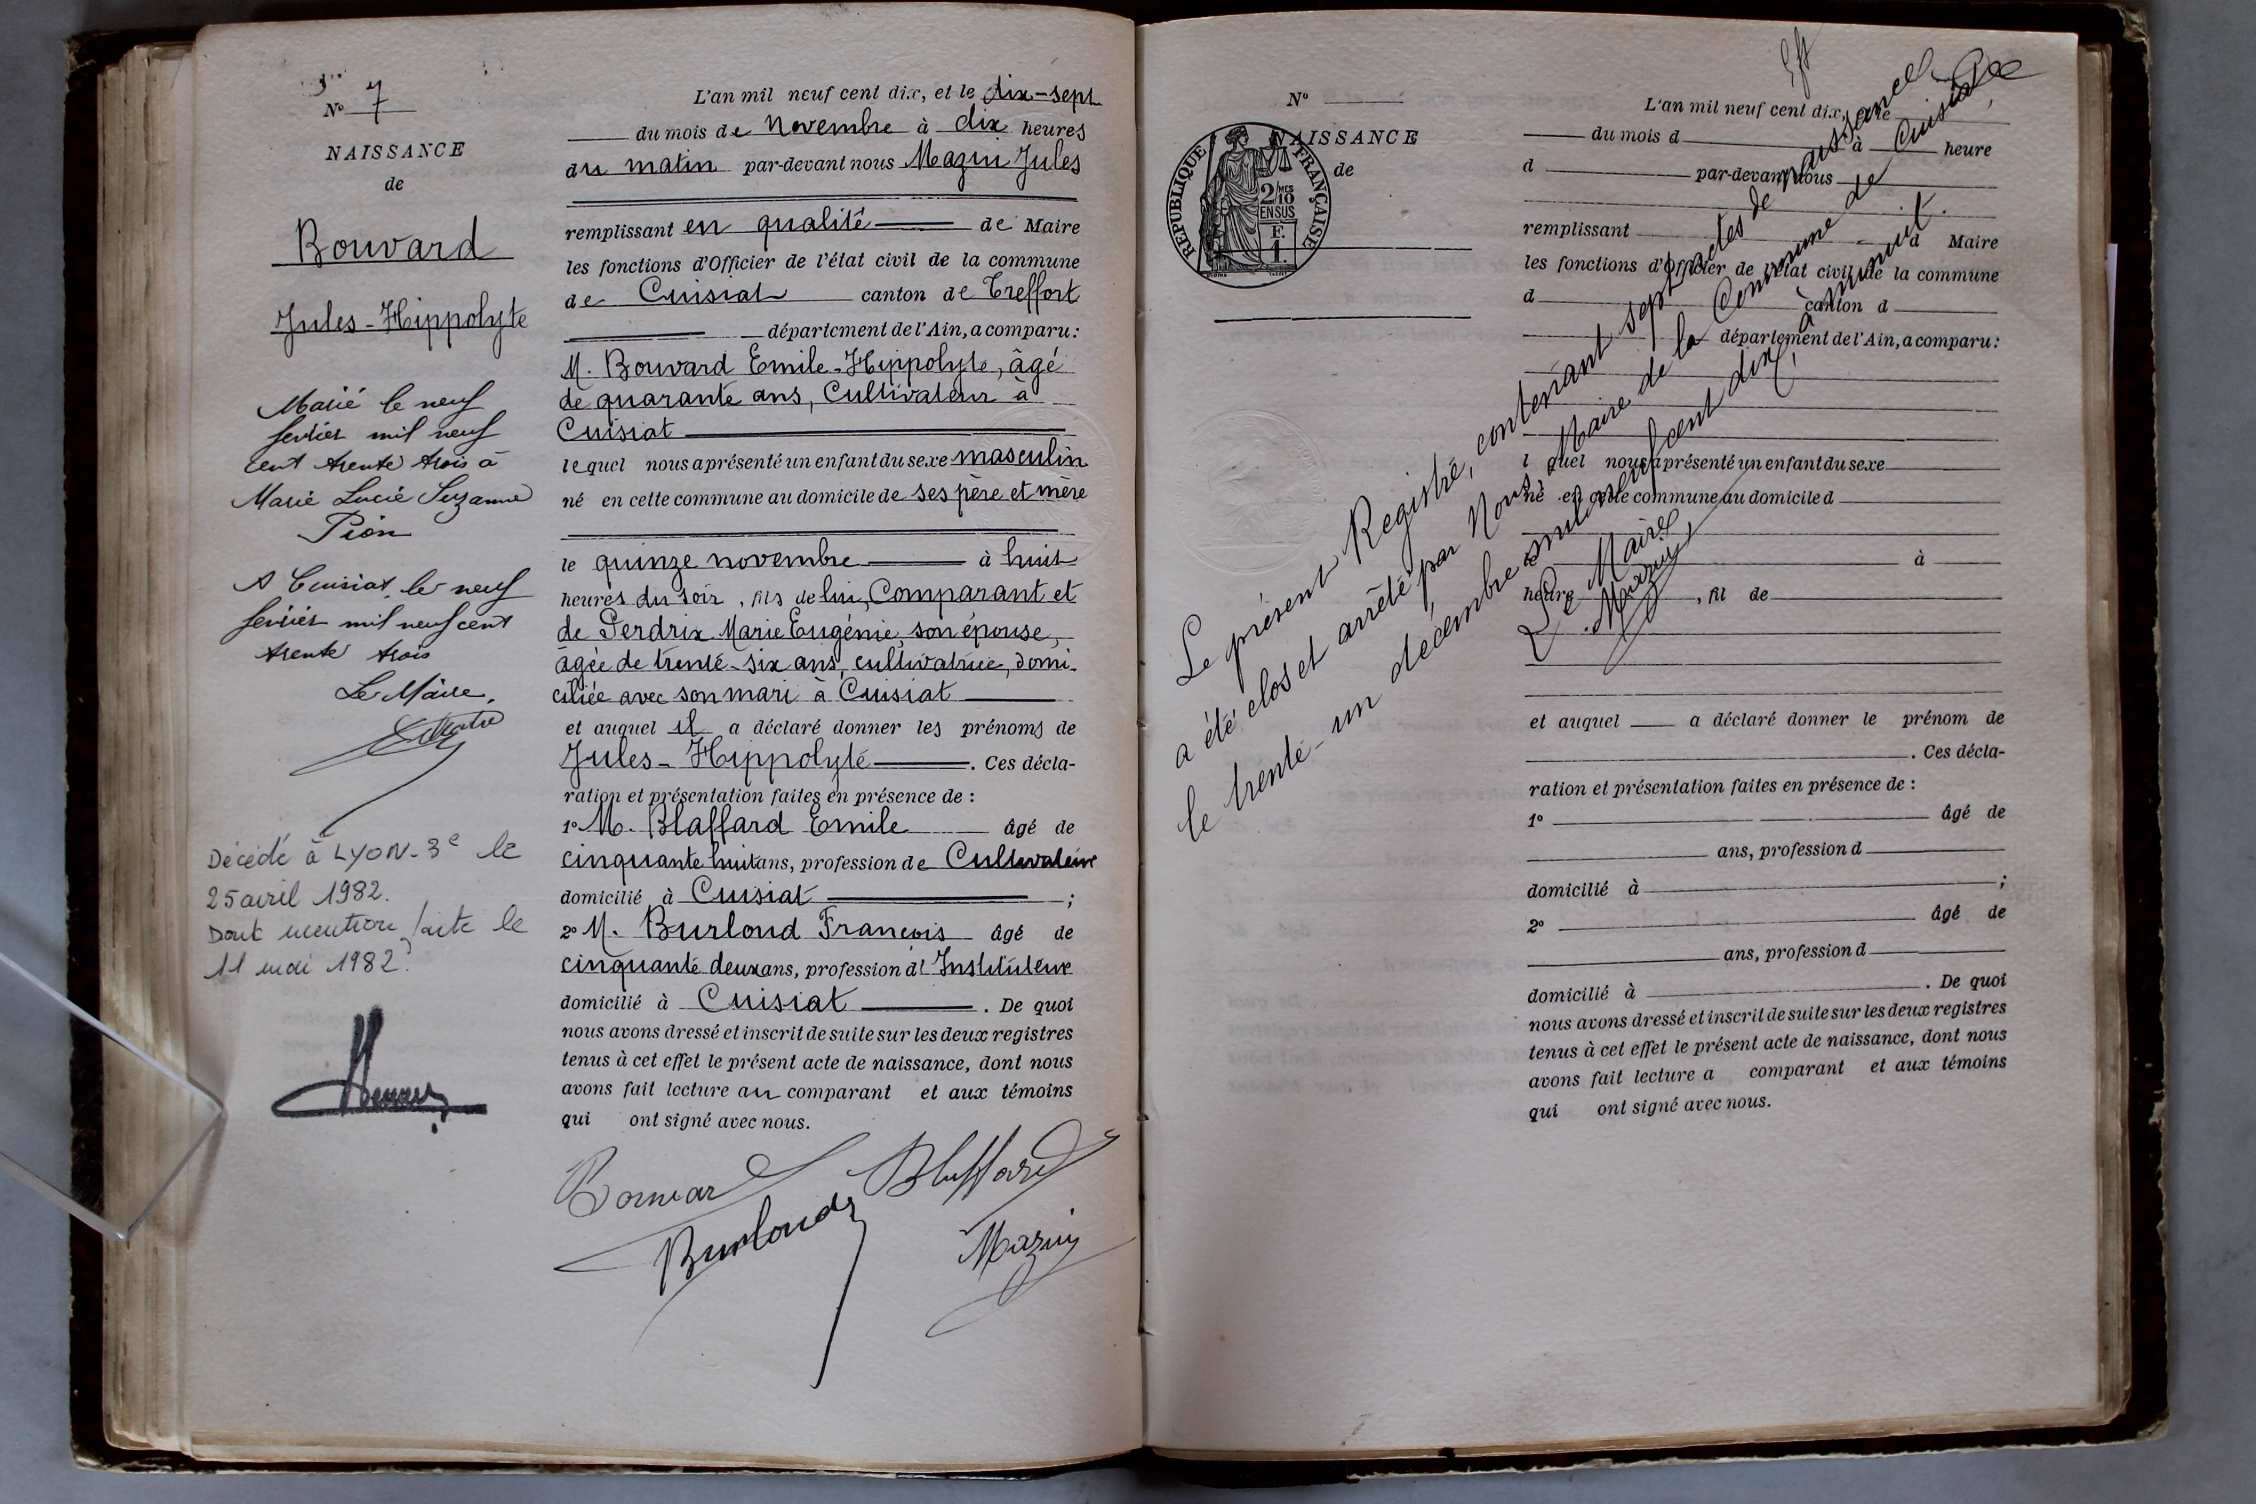 Nº 7
NAISSANCE
de
Bouvard
Jules-Hippolyte
Marié le neuf
février mil neuf
cent trente trois à
Marie Lucie Suzanne
Pion
A Cuisiat, le neuf
février mil neuf cent
trente trois
Le Maire,
Décédé à LYON-3e le
25 avril 1982.
Dont mention faite le
11 mai 1982.
L'an mil neuf cent dix, et le dix-sept
du mois de Novembre à dix heures
du matin par-devant nous Mazuy Jules
remplissant en qualité de Maire
les fonctions d'Officier de l'état civil de la commune
de Cuisiat canton de Treffort
département de l'Ain, a comparu:
M. Bouvard Emile-Hippolyte, âgé
de quarante ans, Cultivateur à
Cuisiat
lequel nous a présenté un enfant du sexe masculin
né en cette commune au domicile de ses père et mère
le quinze novembre à huit
heures du soir, fils de lui, Comparant et
de Perdrix Marie Eugénie, son épouse,
âgée de trente-six ans, cultivatrice, domi-
ciliée avec son mari à Cuisiat
et auquel il a déclaré donner les prénoms de
Jules-Hippolyte. Ces décla-
ration et présentation faites en présence de :
1º M. Blaffard Emile âgé de
cinquante huit ans, profession de Cultivateur
domicilié à Cuisiat ;
2º M. Burloud François âgé de
cinquante deux ans, profession d'Instituteur
domicilié à Cuisiat. De quoi
nous avons dressé et inscrit de suite sur les deux registres
tenus à cet effet le présent acte de naissance, dont nous
avons fait lecture au comparant et aux témoins
qui ont signé avec nous.
Bouvard Blaffard
Burloud Mazuy
Nº
NAISSANCE
de
RÉPUBLIQUE FRANÇAISE
2/MES
10
EN SUS
F.
1.
L'an mil neuf cent dix, et le
du mois d à heure
d par-devant nous
remplissant d Maire
les fonctions d'Officier de l'état civil de la commune
d canton d
département de l'Ain, a comparu:
l quel nous a présenté un enfant du sexe
né en cette commune au domicile d
à
heure , fil de
et auquel a déclaré donner le prénom de
. Ces décla-
ration et présentation faites en présence de :
1º âgé de
ans, profession d
domicilié à ;
2º âgé de
ans, profession d
domicilié à . De quoi
nous avons dressé et inscrit de suite sur les deux registres
tenus à cet effet le présent acte de naissance, dont nous
avons fait lecture a comparant et aux témoins
qui ont signé avec nous.
Le présent Registre, contenant sept actes de naissance
a été clos et arrêté par Nous, Maire de la Commune de Cuisiat
le trente-un décembre mil neuf cent dix, à minuit.
Le Maire
Mazuy